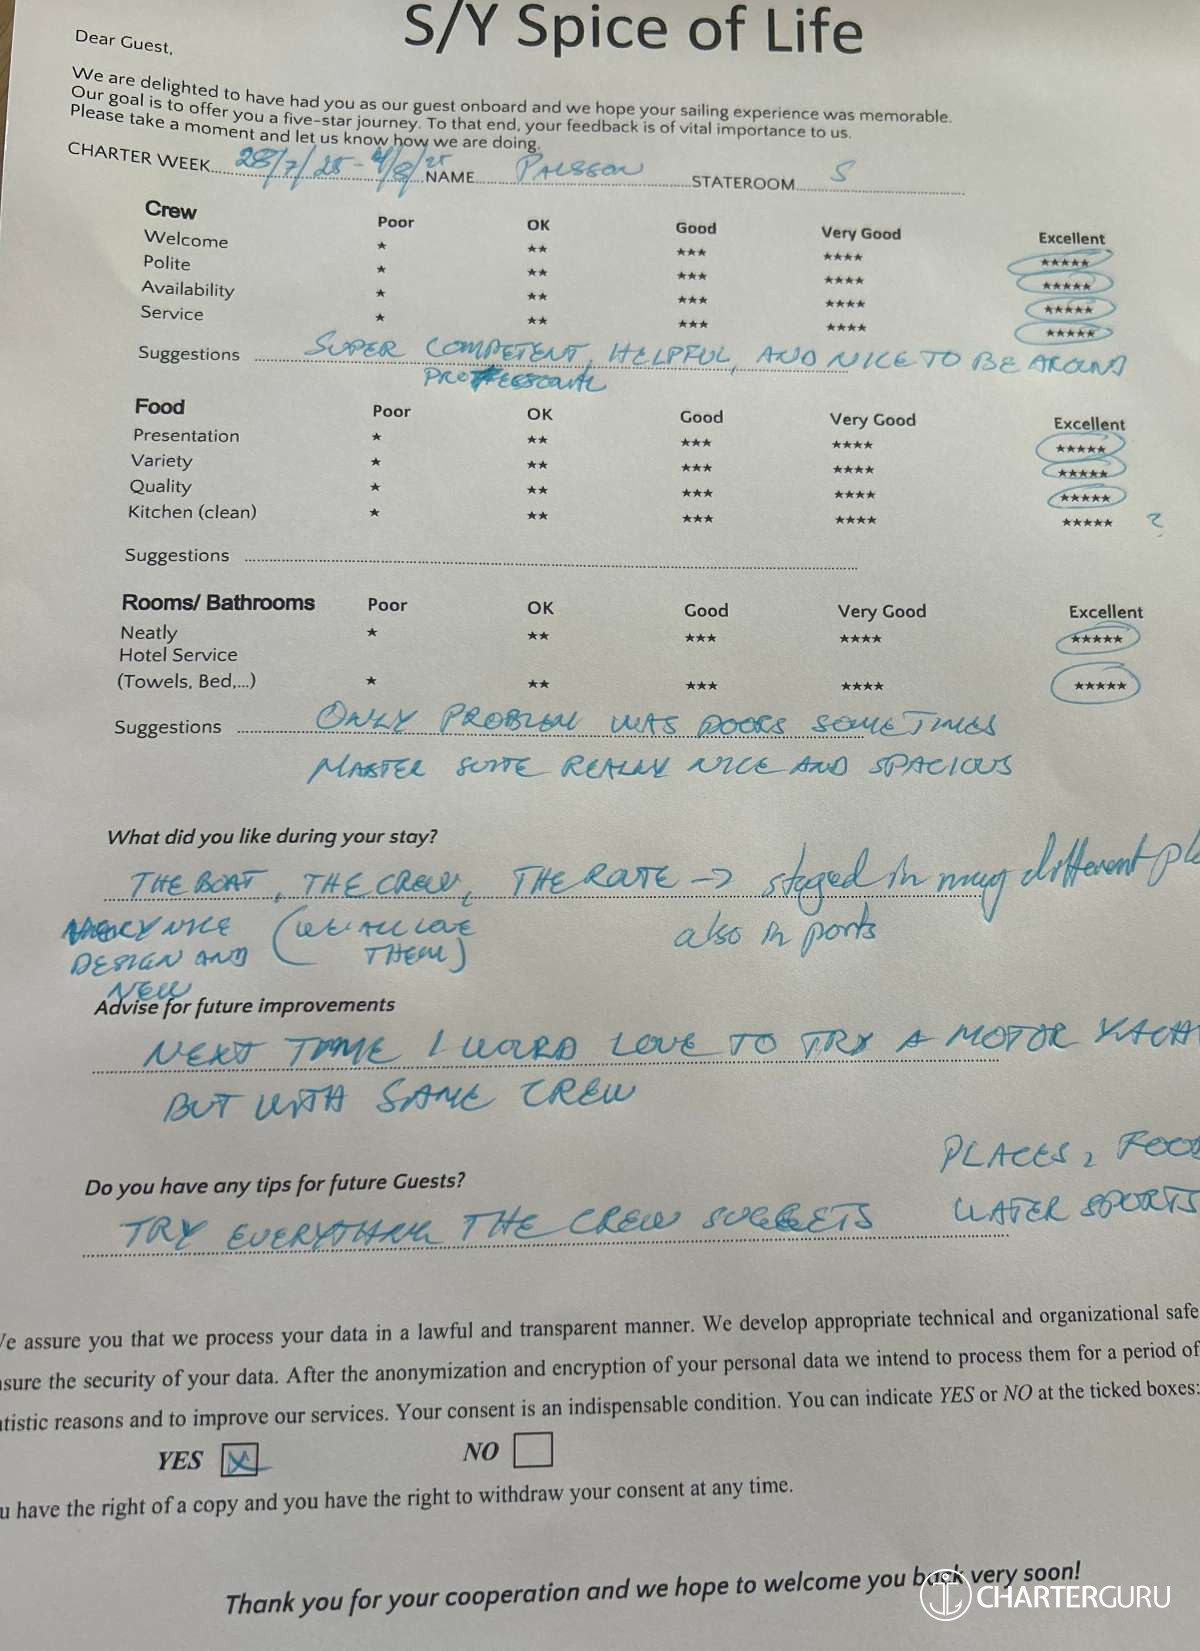 S/Y Spice of Life
Dear Guest,
We are delighted to have had you as our guest onboard and we hope your sailing experience was memorable.
Our goal is to offer you a five-star journey. To that end, your feedback is of vital importance to us.
Please take a moment and let us know how we are doing.
CHARTER WEEK 28/7/25 - 4/8/25 NAME PALSSON STATEROOM 5
Crew Poor OK Good Very Good Excellent
Welcome ★ ★★ ★★★ ★★★★ ★★★★★
Polite ★ ★★ ★★★ ★★★★ ★★★★★
Availability ★ ★★ ★★★ ★★★★ ★★★★★
Service ★ ★★ ★★★ ★★★★ ★★★★★
Suggestions SUPER COMPETENT, HELPFUL, AND NICE TO BE AROUND
Food Poor OK Good Very Good Excellent
Presentation ★ ★★ ★★★ ★★★★ ★★★★★
Variety ★ ★★ ★★★ ★★★★ ★★★★★
Quality ★ ★★ ★★★ ★★★★ ★★★★★
Kitchen (clean) ★ ★★ ★★★ ★★★★ ★★★★★ ?
Suggestions
Rooms/ Bathrooms Poor OK Good Very Good Excellent
Neatly ★ ★★ ★★★ ★★★★ ★★★★★
Hotel Service
(Towels, Bed,...) ★ ★★ ★★★ ★★★★ ★★★★★
Suggestions ONLY PROBLEM WAS DOORS SOMETIMES
MASTER SUITE REALLY NICE AND SPACIOUS
What did you like during your stay?
THE BOAT, THE CREW, THE ROUTE → stayed in many different pl
VERY NICE (WE ALL LOVE also in ports
DESIGN AND THEM)
NEW
Advise for future improvements
NEXT TIME I WOULD LOVE TO TRY A MOTOR YACH
BUT WITH SAME CREW
PLACES, FOOD
Do you have any tips for future Guests?
TRY EVERYTHING THE CREW SUGGESTS WATER SPORTS
We assure you that we process your data in a lawful and transparent manner. We develop appropriate technical and organizational safe
nsure the security of your data. After the anonymization and encryption of your personal data we intend to process them for a period of
atistic reasons and to improve our services. Your consent is an indispensable condition. You can indicate YES or NO at the ticked boxes:
YES X NO
u have the right of a copy and you have the right to withdraw your consent at any time.
Thank you for your cooperation and we hope to welcome you back very soon!
CHARTERGURU